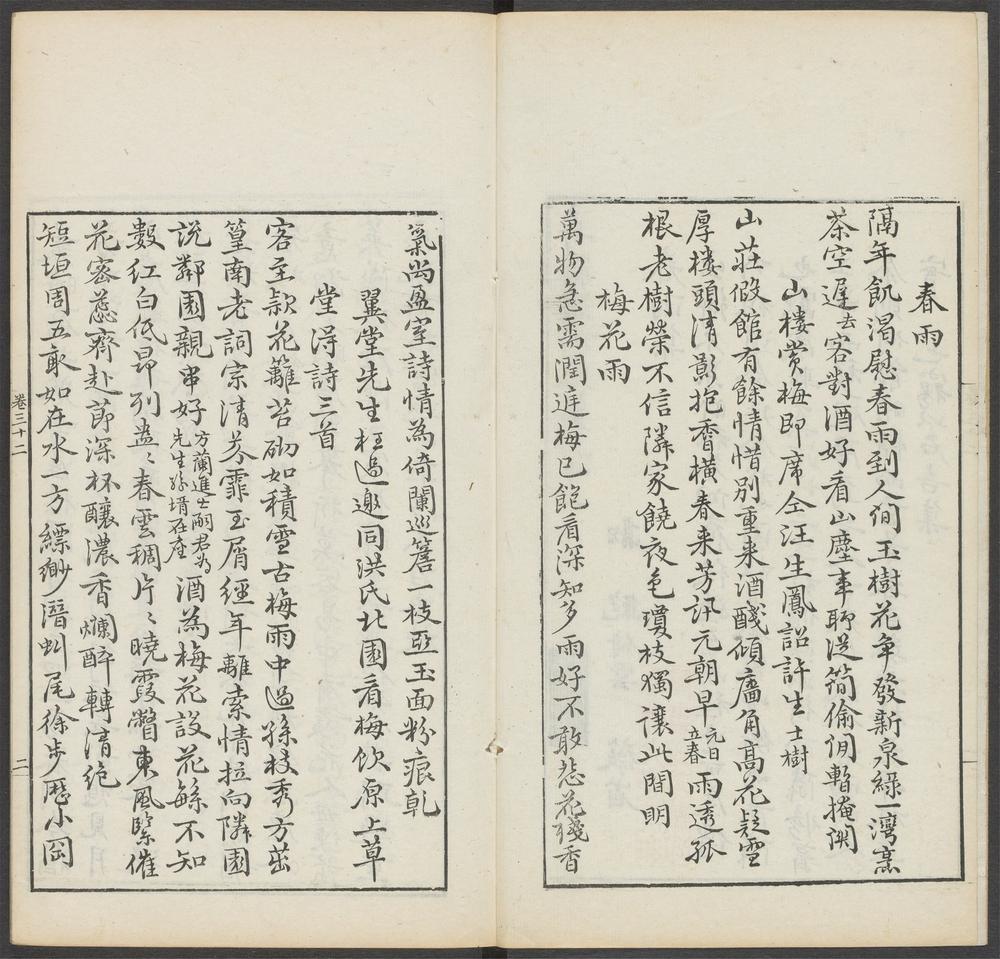 春雨
隔年飢渴慰春雨到人间玉樹花争發新泉綠一灣烹
茶空遲去客對酒好看山塵事聊送简偷閒暫掩関
山樓賞梅即席仝汪生鳳詔許生士樹
山莊假館有餘情惜別重来酒醆傾廬角高花疑雪
厚楼頭清影抱香横春来芳訊元朝早元日立春雨透孤
根老樹榮不信隣家饒夜色瓊枝獨讓此間明
梅花雨
萬物急需潤庭梅已飽看深知多雨好不敢愁花殘香
氣尚盈室詩情為倚闌巡簷一枝亞玉面粉痕乾
翼堂先生枉過邀同洪氏北園看梅飲原上草
堂淂詩三首
客至款花籬苔砌如積雪古梅雨中過孫枝秀方茁
篁南老詞宗清芬霏玉屑經年離索情拉向隣園
説鄰園親串好方蘭進士嗣君為先生孫壻在座酒為梅花設花繇不知
數紅白低昂列盎〻春雲稠片〻曉霞瞥東風緊催
花密蕊齊赴節深杯釀濃香爛醉轉清绝
短垣周五畝如在水一方縹緲潛虯尾徐步歷小岡
卷三十二
二